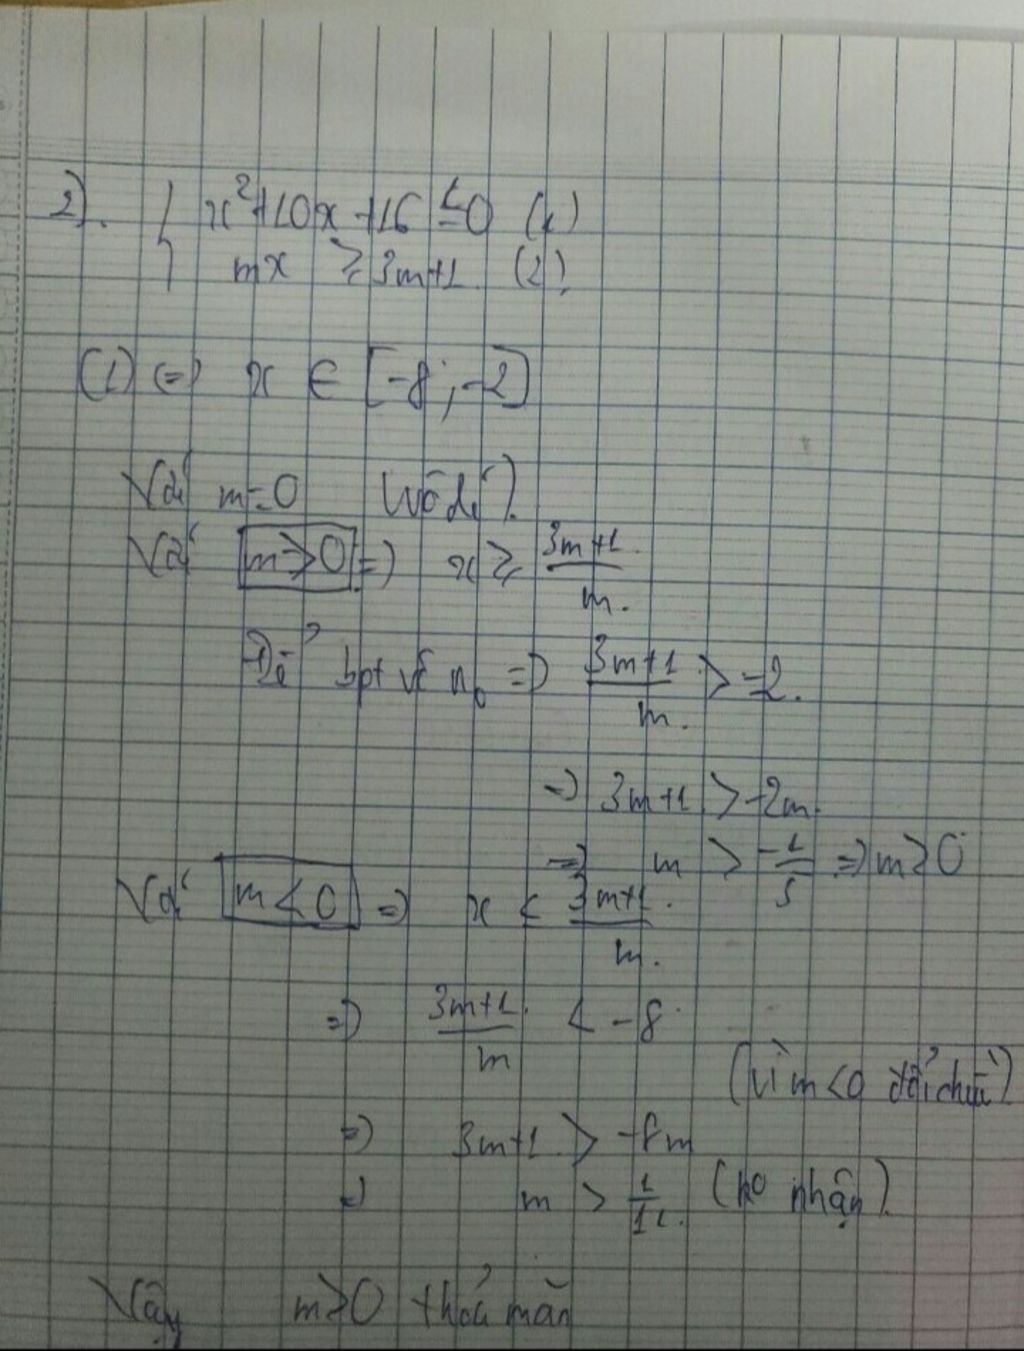 2). { x²+10x+16 ≤0 (1)
mx ≥ 3m+1. (2)
(1) <=> x ∈ [-8;-2]
Với m=0
Với m>0 => x ≥ 3m+1/m.
Để bpt vô n₀ => 3m+1/m. > -2.
=> 3m+1 > -2m.
=> m > -1/5 => m>0
Với m<0 => x < 3m+1/m.
=> 3m+1/m < -8
(vì m<0 đổi chiều)
=> 3m+1 > -8m
=> m > (ko nhận).
Vậy m>0 thoả mãn